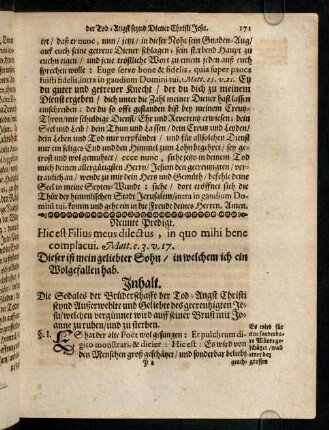 der Tod-Angst seynd Diener Christi Jesu. 171
tet / daß er nunc, nun / jetzt / in dieser Nohr sein Gnaden-Aug/
auf euch seine getreue Diener schlagen / sein sterbend Haupt zu
euch neigen / und jene tröstliche Wort zu einem jeden auß euch
sprechen wolle : Euge serve bone & fidelis, quia super pauca
fuisti fidelis, intra in gaudium Domini tui. Matt. 25. v. 21. Ey
du guter und getreuer Knecht / der du dich zu meinem
Dienst ergeben / dich unter die Zahl meiner Diener hast lassen
einschreiben : der du so offt gestanden bist bey meinem Creutz-
Thron / mir schuldige Dienst / Ehr und Reverentz erwisen; dein
Seel und Leib / dein Thun und Lassen / dein Creutz und Leyden/
dein Leben und Tod mir verpfändet / und für allsolchen Dienst
umb ein seliges End und den Himmel zum Lohn begehret / sey ge-
trost und wol gemuhet / ecce nunc, siehe jetzo in deinem Tod
mich deinen allergütigsten Herrn / Jesum den gecreutzigten / ver-
träulich an / wende zu mir dein Hertz und Gemüth / befehle deine
Seel in meine Seyten-Wunde : siehe / dort eröffnet sich die
Thür der himmlischen Stadt Jerusalem / intra in gaudium Domi-
ni tui. komm und gehe ein in die Freude deines Herren. Amen.
Neunte Predigt.
Hic est Filius meus dilectus, in quo mihi bene
complacui. Matt. c. 3. v. 17.
Dieser ist mein geliebter Sohn / in welchem ich ein
Wolgefallen hab.
Inhalt.
Die Sodales der Brüderschafft der Tod-Angst Christi
seynd Außerwöhlte und Geliebte des gecreutzigten Je-
su / welchen vergünnet wird auff seiner Brust mit Jo-
anne zu ruhen / und zu sterben.
§. I. ES hat der alte Poët wol gesungen : Et pulchrum di-
gito monstrari, & dicier : Hic est : Es wird von
den Menschen groß geschätzet / und sonderbar beliebt
Es wird für
eine sonderba-
re Würde ge-
schätzet / wañ
einer bey
Y 2 groß-